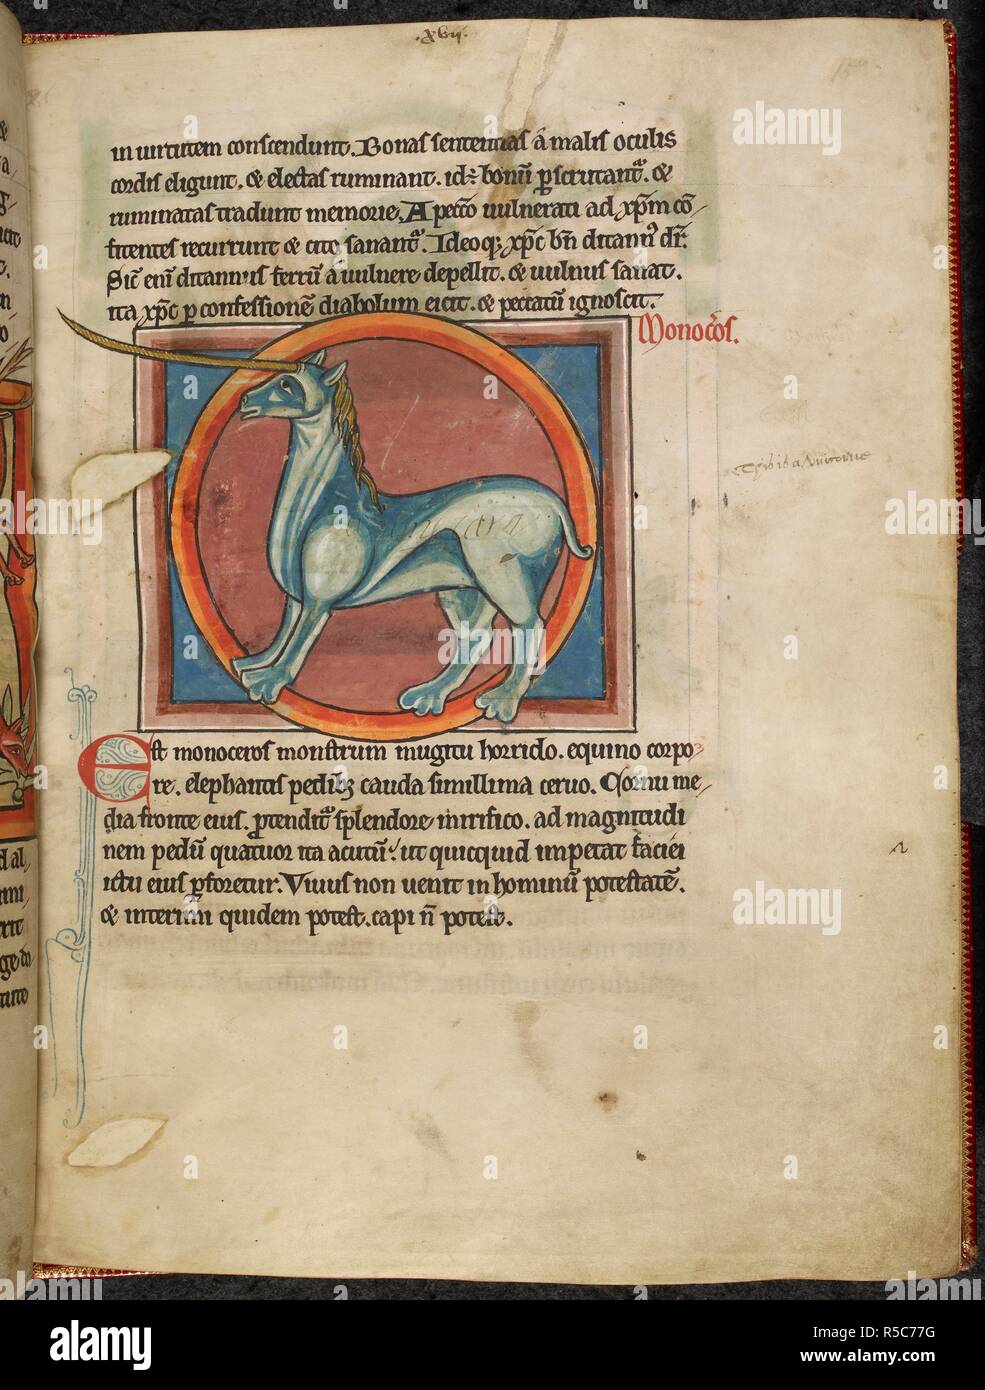 .xvii.
in uirtutem conscendunt. Bonas sententias a malis oculis
cordis eligunt. & electas ruminant. id÷ bonū pscrutant᷑. &
ruminatas tradunt memorie. A pccō uulnerati ad xp̄m cō-
fitentes recurrunt & cito sanant᷑. Ideoq; xp̄c bn̄ ditamꝰ dr̄.
Sic̄ enī ditannus ferrū a uulnere depellit. & uulnus sanat.
ita xp̄c ꝑ confessionē diabolum eicit. & peccatū ignoscit.
Monoc̄os.
Est monoceros monstrum mugitu horrido. equino corpo-
re. elephantis pedibꝫ cauda simillima ceruo. Cornu me-
dia fronte eius. ptendit᷑ splendore mirifico. ad magnitudi
nem pedū quatuor ita acutū. ut quicquid impetat faciei
ictu eius pforetur. Viuus non uenit in hominū potestatē.
& interimi quidem potest. capi n̄ potest.
alamy
Image ID: R5C77G
www.alamy.com